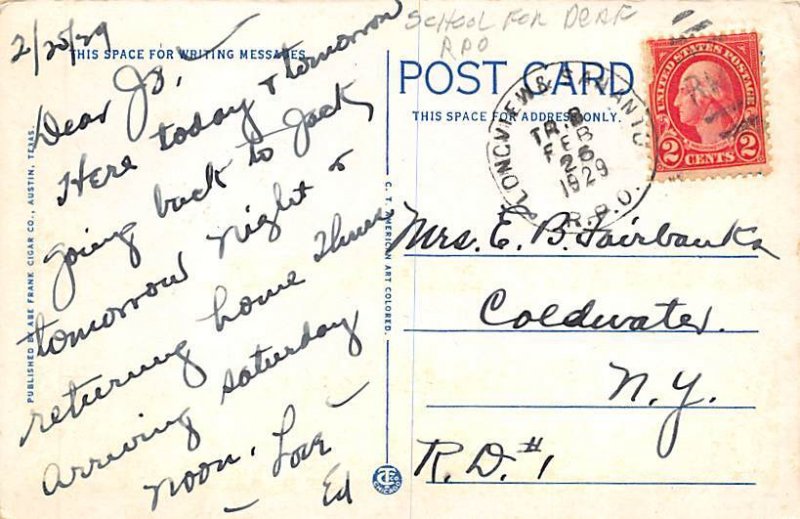 SCHOOL FOR DEAF
RPO
2/25/29
THIS SPACE FOR WRITING MESSAGES
Dear Jo, —
Here today & tomorrow
going back to Jack
tomorrow night &
returning home Thurs
arriving Saturday
noon. Love —
— Ed
PUBLISHED BY ABE FRANK CIGAR CO., AUSTIN, TEXAS.
C. T. AMERICAN ART COLORED.
POST CARD
THIS SPACE FOR ADDRESS ONLY.
LONGVIEW & SAN ANTO
TR.
FEB
26
1929
R.P.O.
UNITED STATES POSTAGE
2 CENTS 2
Mrs. E. B. Fairbanks
Coldwater.
N.Y.
R.D. #1